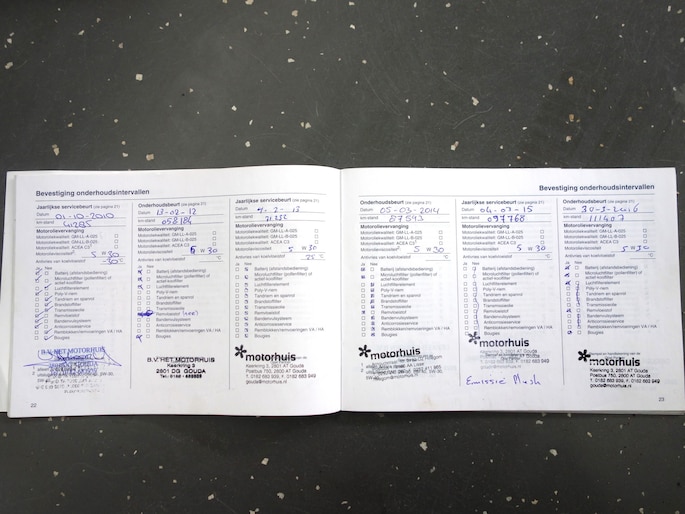 Bevestiging onderhoudsintervallen
Jaarlijkse servicebeurt (zie pagina 21)
Datum 01-10-2010
km-stand 41285
Motorolieverversing
Motoroliekwaliteit: GM-LL-A-025
Motoroliekwaliteit: GM-LL-B-025
Motoroliekwaliteit: ACEA C3
Motorolieviscositeit 5 W 30
Antivries van koelvloeistof -30 °C
Ja Nee
Batterij (afstandsbediening)
Microluchtfilter (pollenfilter) of
actief-koolfilter
Luchtfilterelement
Poly-V-riem
Tandriem en spanrol
Brandstoffilter
Transmissieolie
Remvloeistof
Bandenvulsysteem
Anticorrosieservice
Remblokken/remvoeringen VA / HA
Bougies
B.V. NET MOTORHUIS
22
Onderhoudsbeurt (zie pagina 21)
Datum 13-02-12
km-stand 058184
Motorolieverversing
Motoroliekwaliteit: GM-LL-A-025
Motoroliekwaliteit: GM-LL-B-025
Motoroliekwaliteit: ACEA C3
Motorolieviscositeit W 30
Antivries van koelvloeistof °C
Ja Nee
Batterij (afstandsbediening)
Microluchtfilter (pollenfilter) of
actief-koolfilter
Luchtfilterelement
Poly-V-riem
Tandriem en spanrol
Brandstoffilter
Transmissieolie
Remvloeistof
Bandenvulsysteem
Anticorrosieservice
Remblokken/remvoeringen VA / HA
Bougies
B.V. NET MOTORHUIS
Keerkring 3
2801 DG GOUDA
Jaarlijkse servicebeurt (zie pagina 21)
Datum 4-2-13
km-stand
Motorolieverversing
Motoroliekwaliteit: GM-LL-A-025
Motoroliekwaliteit: GM-LL-B-025
Motoroliekwaliteit: ACEA C3
Motorolieviscositeit 5 W 30
Antivries van koelvloeistof °C
Ja Nee
Batterij (afstandsbediening)
Microluchtfilter (pollenfilter) of
actief-koolfilter
Luchtfilterelement
Poly-V-riem
Tandriem en spanrol
Brandstoffilter
Transmissieolie
Remvloeistof
Bandenvulsysteem
Anticorrosieservice
Remblokken/remvoeringen VA / HA
Bougies
motorhuis
Keerkring 3, 2801 AT Gouda
Postbus 750, 2800 AT Gouda
T. 0182 683 939, F. 0182 683 949
gouda@motorhuis.nl
Bevestiging onderhoudsintervallen
Onderhoudsbeurt (zie pagina 21)
Datum 05-03-2014
km-stand 87593
Motorolieverversing
Motoroliekwaliteit: GM-LL-A-025
Motoroliekwaliteit: GM-LL-B-025
Motoroliekwaliteit: ACEA C3
Motorolieviscositeit 5 W 30
Antivries van koelvloeistof °C
Ja Nee
Batterij (afstandsbediening)
Microluchtfilter (pollenfilter) of
actief-koolfilter
Luchtfilterelement
Poly-V-riem
Tandriem en spanrol
Brandstoffilter
Transmissieolie
Remvloeistof
Bandenvulsysteem
Anticorrosieservice
Remblokken/remvoeringen VA / HA
Bougies
motorhuis
Jaarlijkse servicebeurt (zie pagina 21)
Datum 04-03-15
km-stand 097768
Motorolieverversing
Motoroliekwaliteit: GM-LL-A-025
Motoroliekwaliteit: GM-LL-B-025
Motoroliekwaliteit: ACEA C3
Motorolieviscositeit 5 W 30
Antivries van koelvloeistof °C
Ja Nee
Batterij (afstandsbediening)
Microluchtfilter (pollenfilter) of
actief-koolfilter
Luchtfilterelement
Poly-V-riem
Tandriem en spanrol
Brandstoffilter
Transmissieolie
Remvloeistof
Bandenvulsysteem
Anticorrosieservice
Remblokken/remvoeringen VA / HA
Bougies
motorhuis
Keerkring 3, 2801 AT Gouda
Postbus 750, 2800 AT Gouda
T. 0182 683 939, F. 0182 683 949
gouda@motorhuis.nl
Emissie
Onderhoudsbeurt (zie pagina 21)
Datum 30-3-2016
km-stand 111407
Motorolieverversing
Motoroliekwaliteit: GM-LL-A-025
Motoroliekwaliteit: GM-LL-B-025
Motoroliekwaliteit: ACEA C3
Motorolieviscositeit 5 W 30
Antivries van koelvloeistof °C
Ja Nee
Batterij (afstandsbediening)
Microluchtfilter (pollenfilter) of
actief-koolfilter
Luchtfilterelement
Poly-V-riem
Tandriem en spanrol
Brandstoffilter
Transmissieolie
Remvloeistof
Bandenvulsysteem
Anticorrosieservice
Remblokken/remvoeringen VA / HA
Bougies
motorhuis
Keerkring 3, 2801 AT Gouda
Postbus 750, 2800 AT Gouda
T. 0182 683 939, F. 0182 683 949
gouda@motorhuis.nl
23